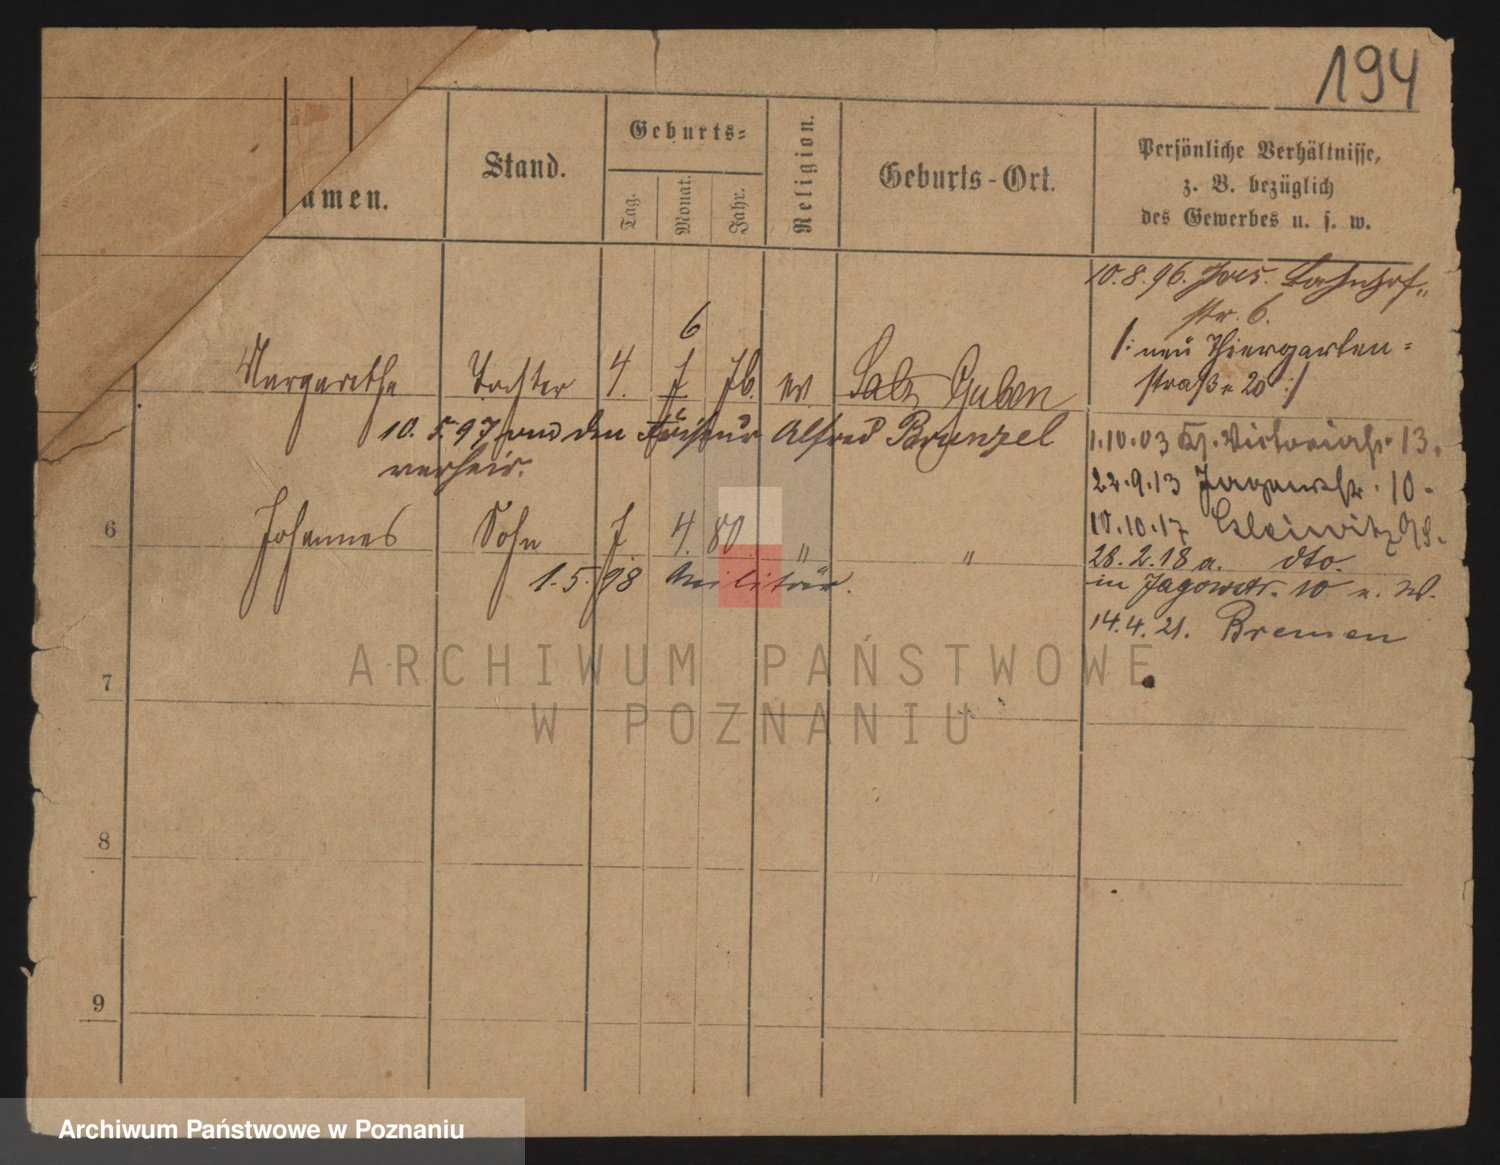 194
amen.
Stand.
Geburts=
Tag.
Monat.
Jahr.
Religion.
Geburts-Ort.
Persönliche Verhältnisse,
z. B. bezüglich
des Gewerbes u. s. w.
10.8.96. Bahnhof-
str. 6.
/: neu Thiergarten=
straße 20 :/
6
Margarethe Tochter 4. 7 76. ev. Guben
10. 5. 97 den Friseur Alfred Brunzel
verheir.
1.10.03 Victoriastr. 13.
22.9.13 Jagowstr. 10.
6 Johannes Sohn 7. 4. 80. " "
10.10.17 Gleiwitz
1.5.98 Militär.
28.2.18 a. dto.
in Jagowstr. 10 u. W.
14.4.21. Bremen
7
8
9
ARCHIWUM PAŃSTWOWE
W POZNANIU
Archiwum Państwowe w Poznaniu